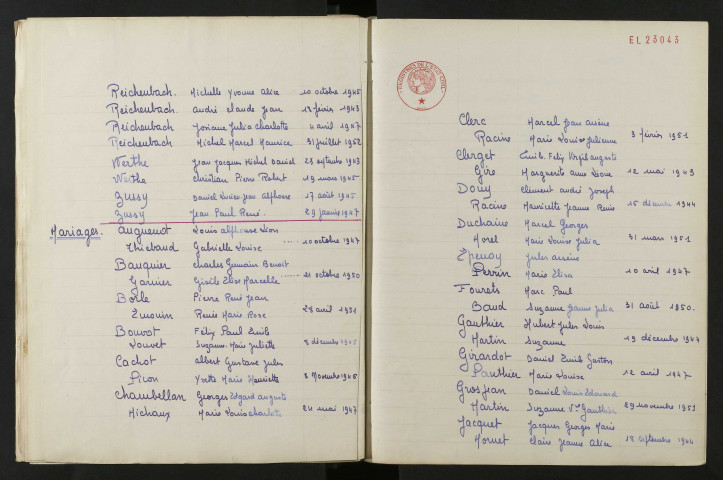 Reichenbach. Michelle Yvonne Alice 10 octobre 1945
Reichenbach. André Claude Jean 18 février 1943
Reichenbach Josiane Julia Charlotte 4 avril 1947
Reichenbach Michel Marcel Maurice 31 juillet 1952
Werthe Jean Jacques Michel Daniel 23 septembre 1943
Werthe Christian Pierre Robert 19 mars 1945
Zussy Daniel Louis Jean Alphonse 17 août 1945
Zussy Jean Paul René. 29 janvier 1947
Mariages. Auguenot Louis Alphonse Léon
Thiebaud Gabrielle Louise 10 octobre 1947
Bauquier Charles Germain Benoit
Garnier Gisèle Elise Marcelle 21 octobre 1950
Boile Pierre René Jean
Renée Marie Rose 28 avril 1951
Bouvot Félix Paul Emile
Louvet Suzanne Marie Juliette 8 décembre 1945
Cachot Albert Gustave Jules
Picon Yvette Marie Henriette 8 Novembre 1945
Chambellan Georges Edgard Auguste
Michaux Marie Louise Charlotte 24 mai 1947
EL 23043
Clerc Marcel Jean Arsène
Racine Marie Louise Julienne 3 février 1951
Clerget Emile Felix Virgil Auguste
Gire Marguerite Anne 12 mai 1943
Douy Clement André Joseph
Racine Mauricette Jeanne Renée 15 décembre 1944
Duchaine Marcel Georges
Morel Marie Louise Julia 31 mars 1951
Epenoy Jules Arsène
Perrin Marie Elisa 10 avril 1947
Fourets Marc Paul
Baud Suzanne Jeanne Julia 31 août 1950.
Gauthier Hubert Jules Louis
Martin Suzanne 19 décembre 1944
Girardot Daniel Emile Gaston
Panthier Marie Louise 12 avril 1947
Grosjean Daniel Louis Edouard
Martin Suzanne Vve Gauthier 29 novembre 1951
Jacquet Jacques Georges Marie
Mornet Claire Jeanne Alice 18 septembre 1944